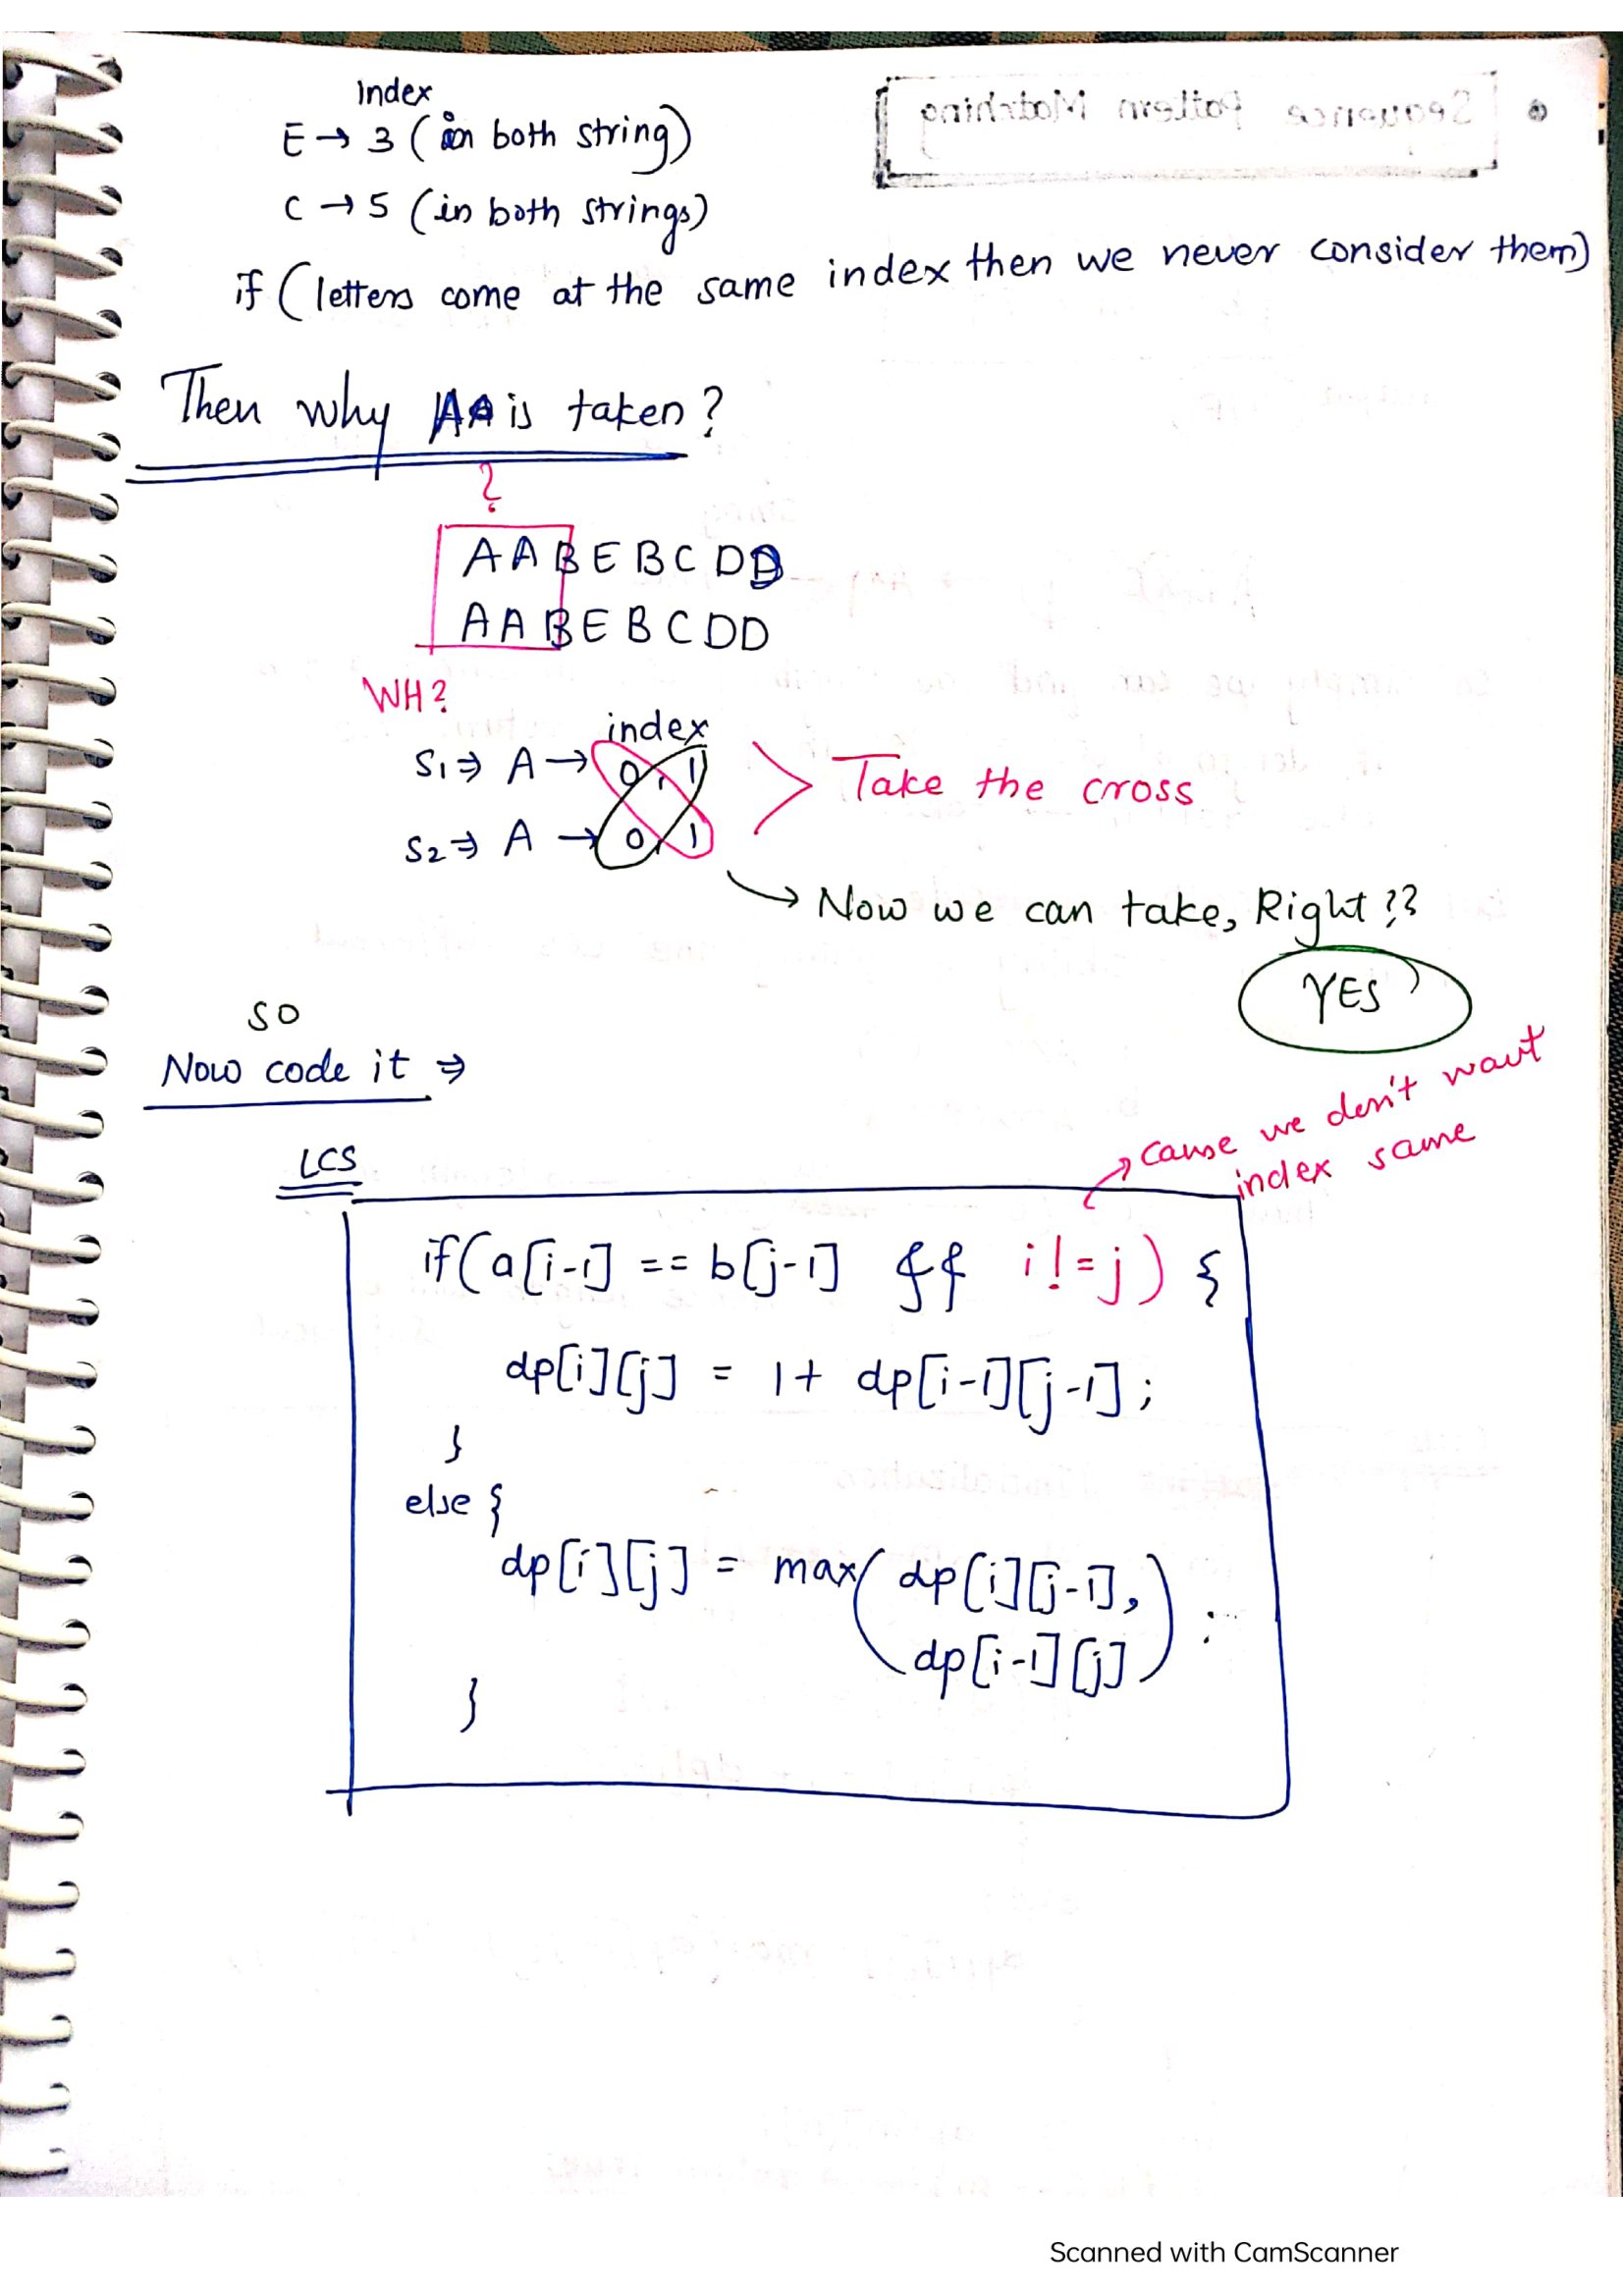 Index
E → 3 (in both string)
C → 5 (in both strings)
if (letters come at the same index then we never consider them)
Then why AA is taken?
?
A A B E B C D D
A A B E B C D D
WH?
index
S1 ⇒ A → 0, 1
S2 ⇒ A → 0, 1
Take the cross
→ Now we can take, Right??
YES
SO
Now code it ⇒
Cause we don't want
index same
LCS
if(a[i-1] == b[j-1] && i!=j) {
dp[i][j] = 1+ dp[i-1][j-1];
}
else {
dp[i][j] = max( dp[i][j-1],
dp[i-1][j] ) ;
}
Sequence Pattern Matching
Scanned with CamScanner